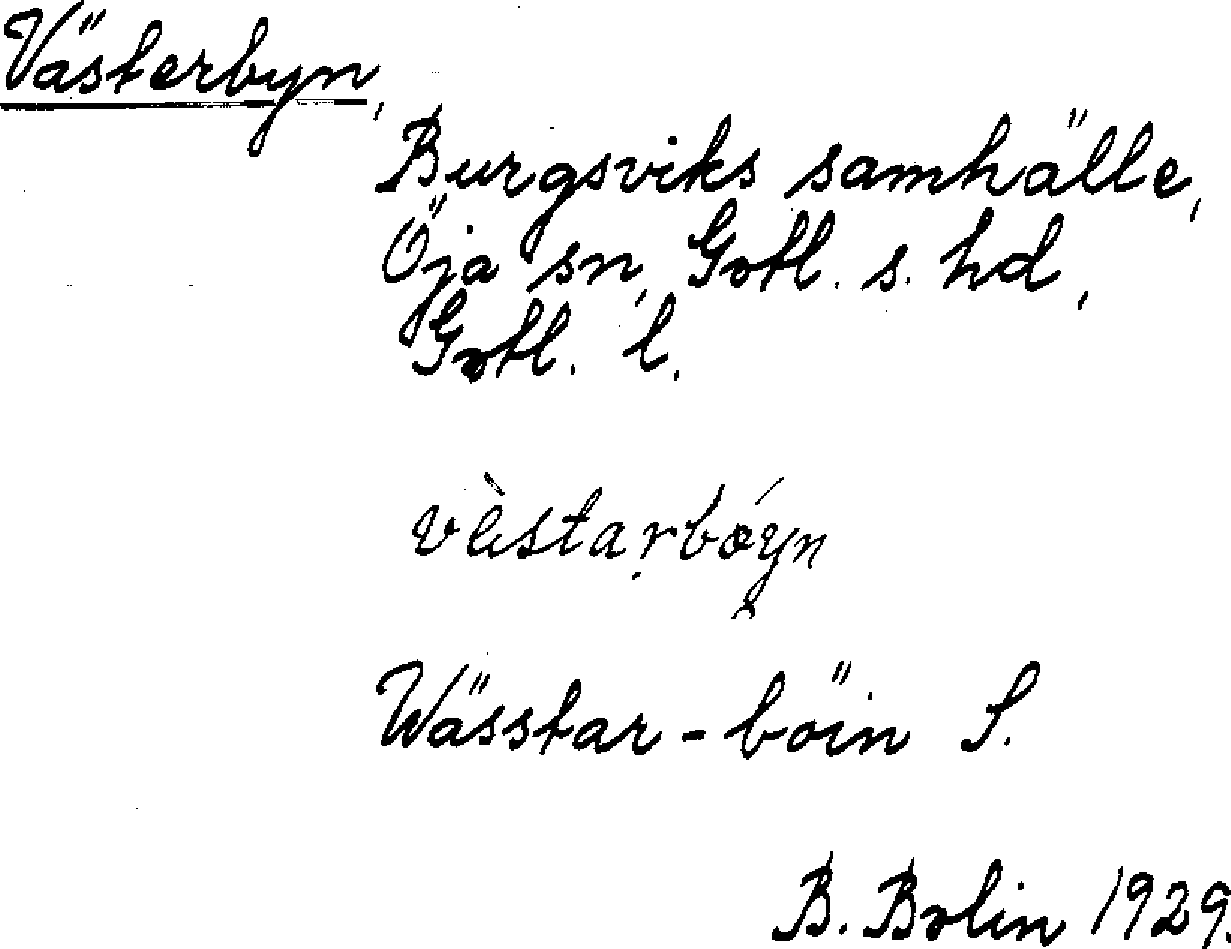 Västerbyn,
Burgsviks samhälle,
Öja sn, Gotl. s. hd,
Gotl. l.
vàstarbǿyn
Wässtar-böin S.
B. Bolin 1929.